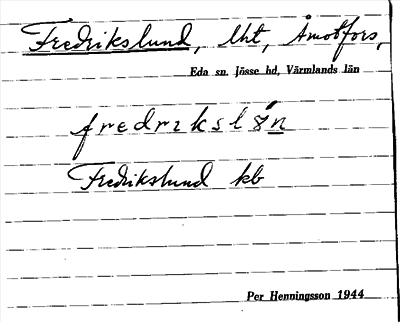 Fredrikslund, lht, Åmotfors,
Eda sn. Jösse hd, Värmlands län
fredrıkslǿn
Fredrikslund kb
Per Henningsson 1944